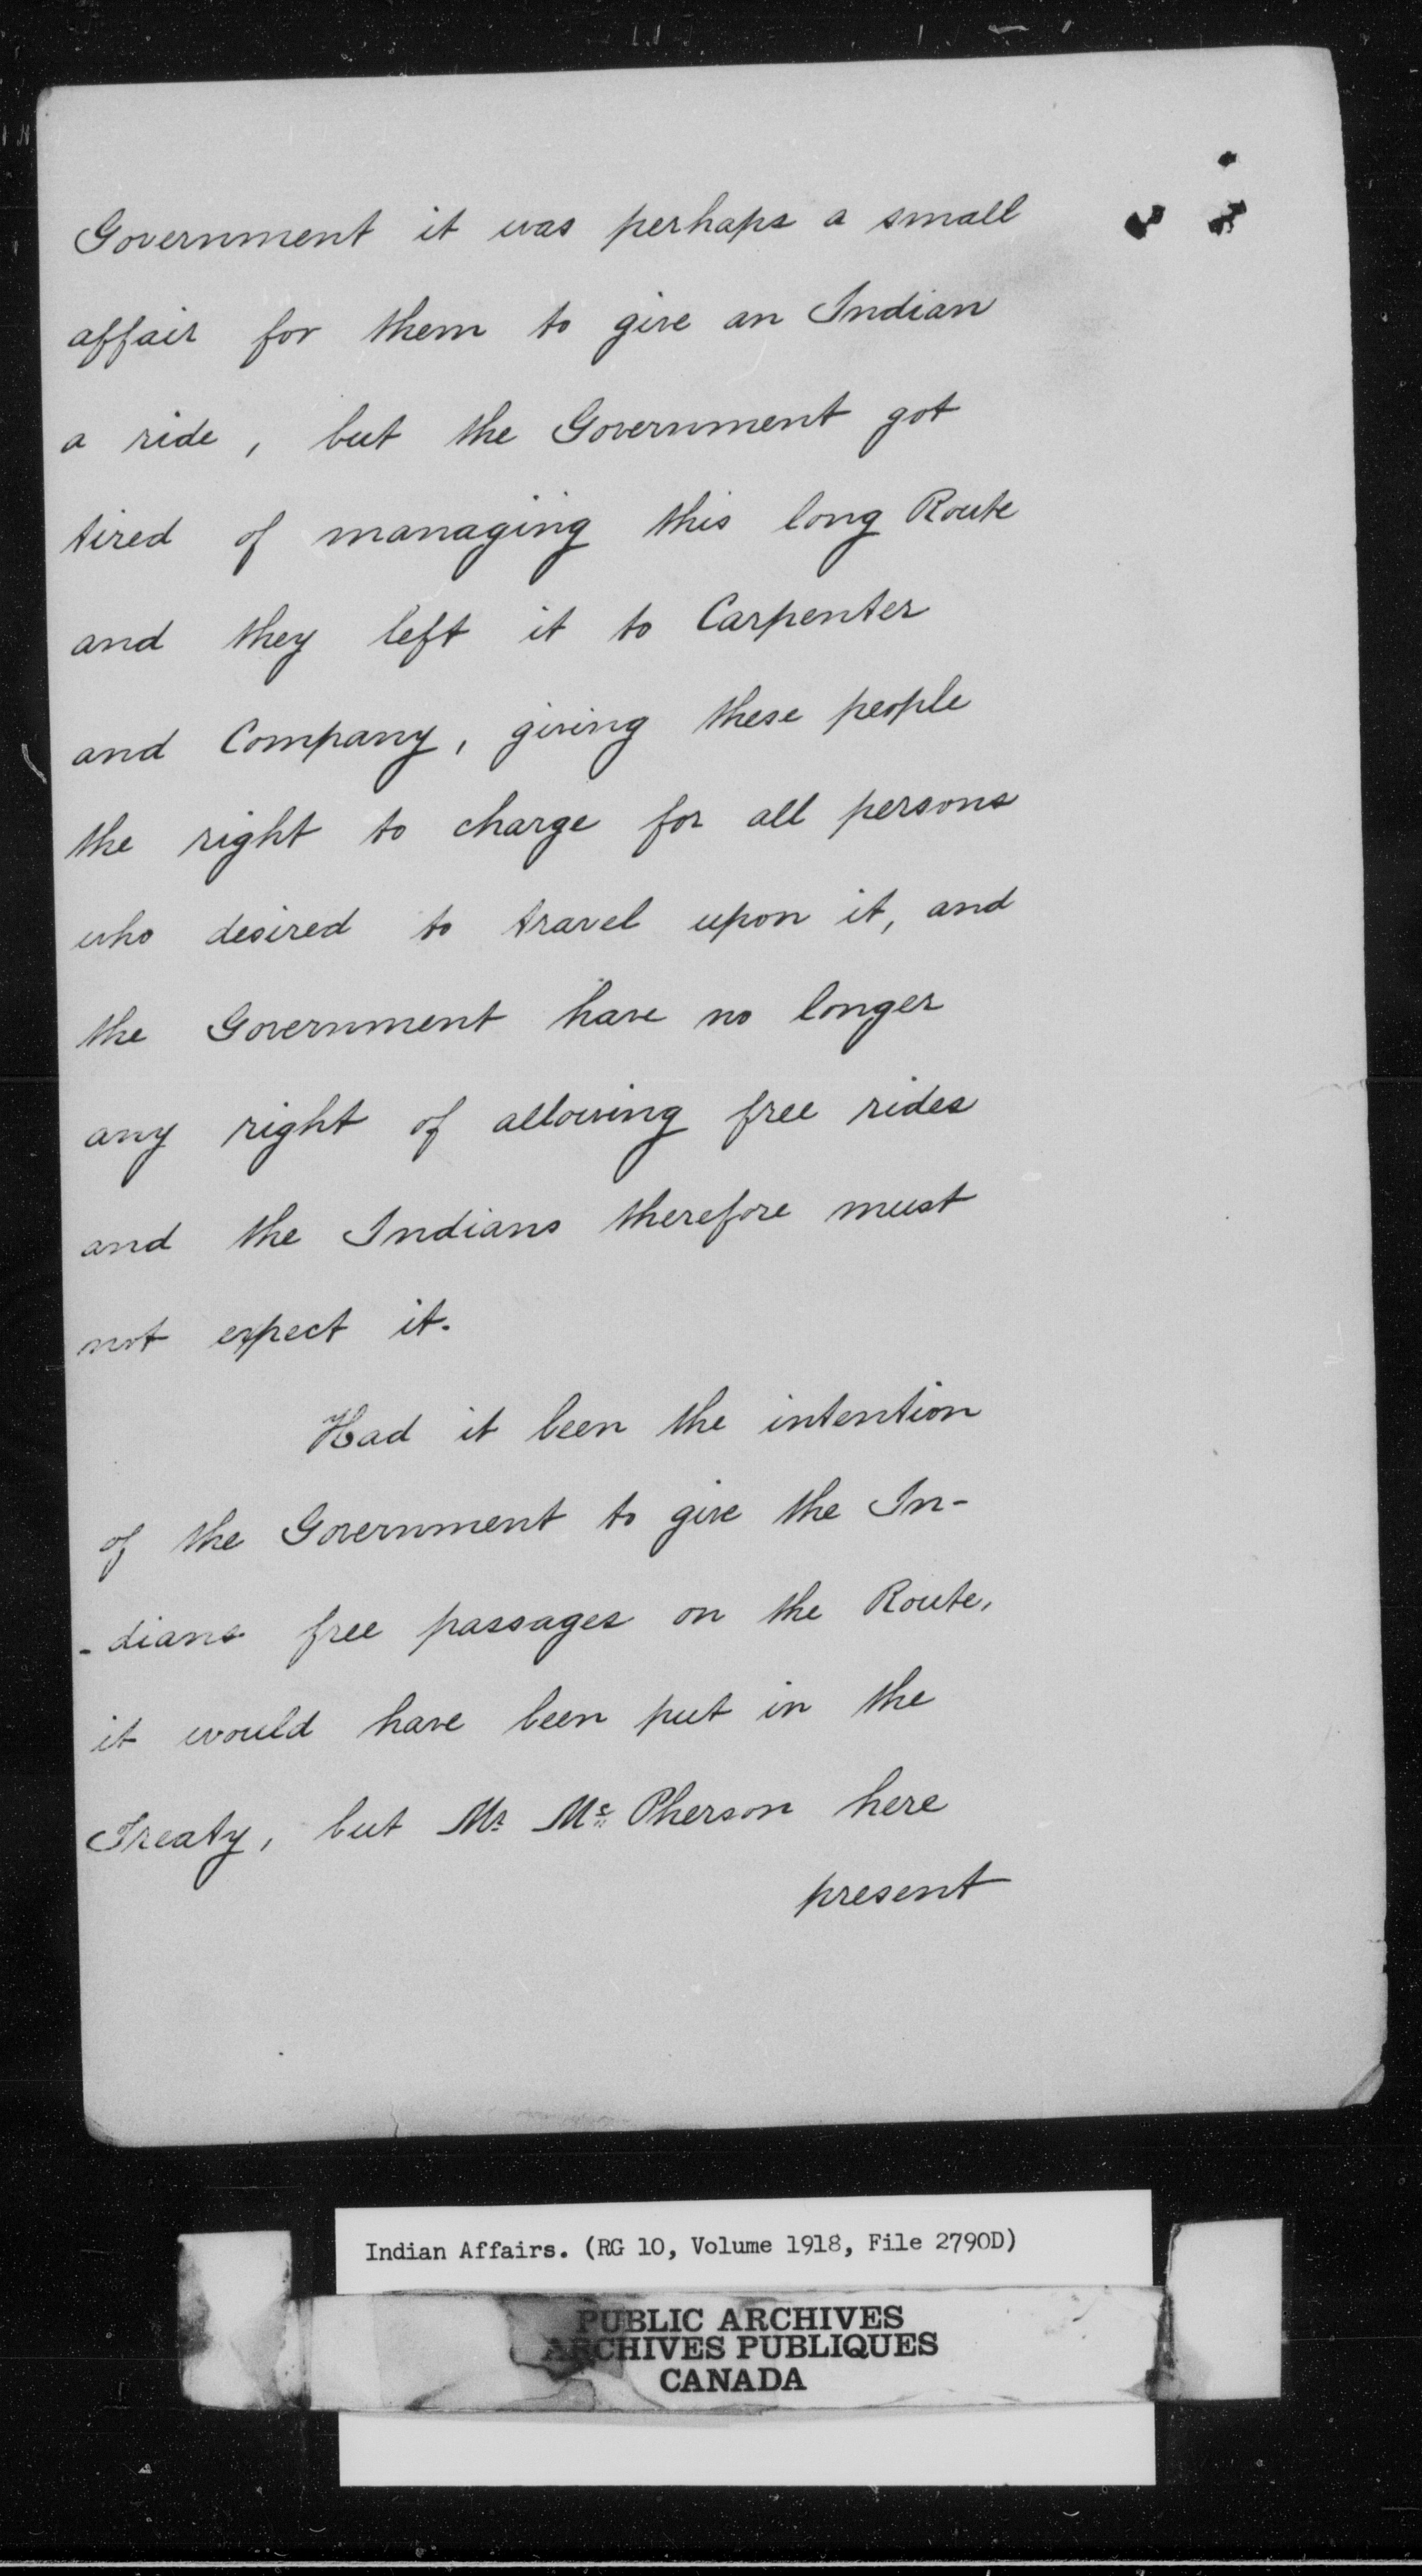 Government it was perhaps a small
affair for them to give an Indian
a ride, but the Government got
tired of managing this long Route
and they left it to Carpenter
and Company, giving these people
the right to charge for all persons
who desired to travel upon it, and
the Government have no longer
any right of allowing free rides
and the Indians therefore must
not expect it.
Had it been the intention
of the Government to give the In-
-dians free passages on the Route,
it would have been put in the
Treaty, but Mr McPherson here
present
Indian Affairs. (RG 10, Volume 1918, File 2790D)
PUBLIC ARCHIVES
ARCHIVES PUBLIQUES
CANADA